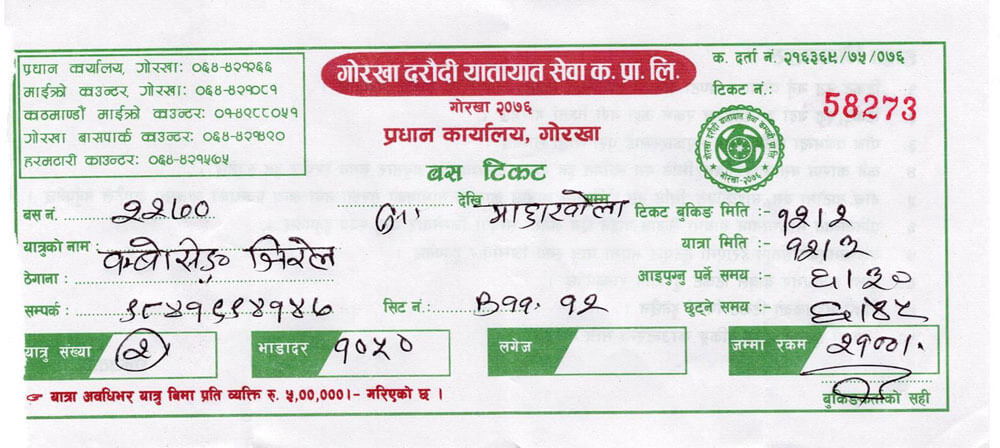 प्रधान कार्यालय, गोरखा: ०६४-४२१२६६
माईक्रो काउन्टर, गोरखा: ०६४-४२१०८१
काठमाण्डौं माईक्रो काउन्टर: ०१-४२८८०५१
गोरखा बासपार्क काउन्टर: ०६४-४२१४२०
हरमटारी काउन्टर: ०६४-४२१५७५
गोरखा दरौदी यातायात सेवा क. प्रा. लि.
गोरखा २०७६
प्रधान कार्यालय, गोरखा
बस टिकट
क. दर्ता नं. २१६३६९/७५/०७६
टिकट नं.:
58273
गोरखा दरौदी यातायात सेवा कम्पनी प्रा. लि.
गोरखा - २०७६
बस नं. २२७० देखि सम्म टिकट बुकिङ मिति :- १२।२
यात्रुको नाम : यात्रा मिति :- १२।३
ठेगाना : आइपुग्नु पर्ने समय :- ६।३०
सम्पर्क : ९८४१९९४१४७ सिट नं.: B११. १२ छुट्ने समय :- ६।४५
यात्रु संख्या २ भाडादर १०५० लगेज जम्मा रकम २१००।-
यात्रा अवधिभर यात्रु बिमा प्रति व्यक्ति रु. ५,००,०००।- गरिएको छ ।
बुकिङकर्ताको सही